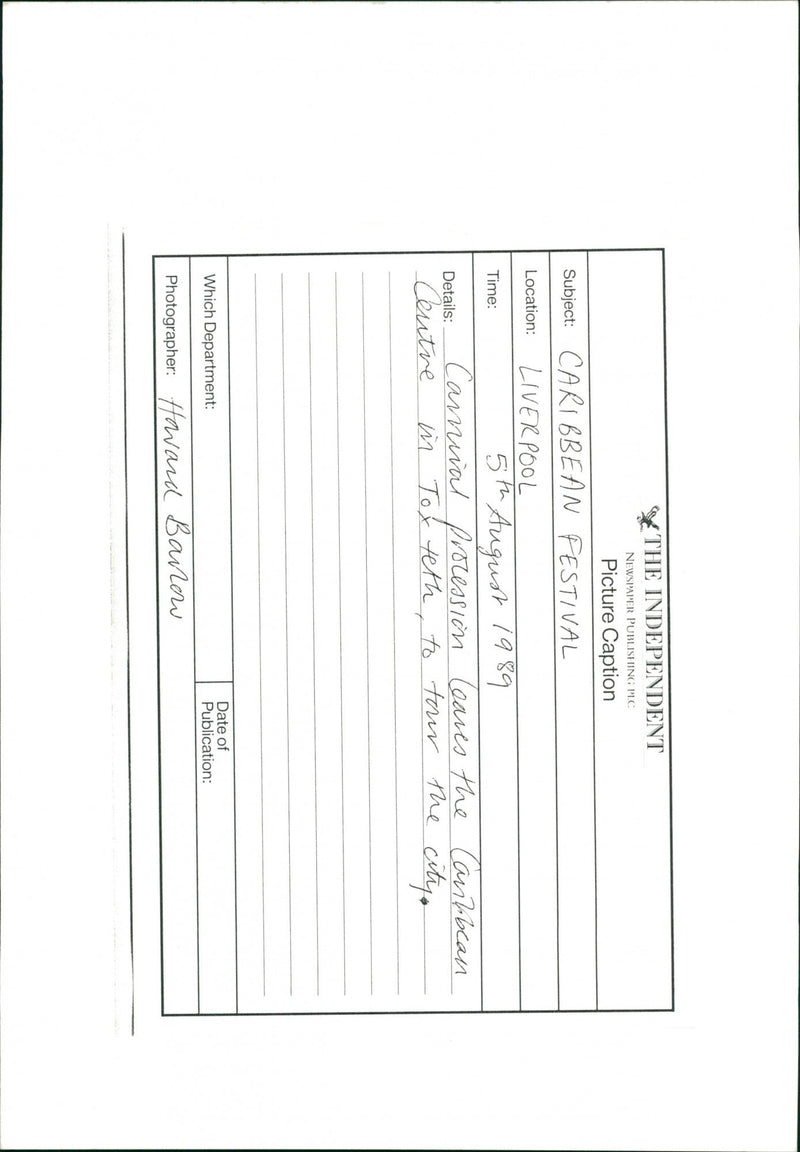 THE INDEPENDENT
NEWSPAPER PUBLISHING PLC
Picture Caption
Subject: CARIBBEAN FESTIVAL
Location: LIVERPOOL
Time: 5th August 1989
Details: Carnival procession leaves the Caribbean
Centre in Toxteth, to tour the city.
Which Department:
Date of
Publication:
Photographer: Howard Barlow